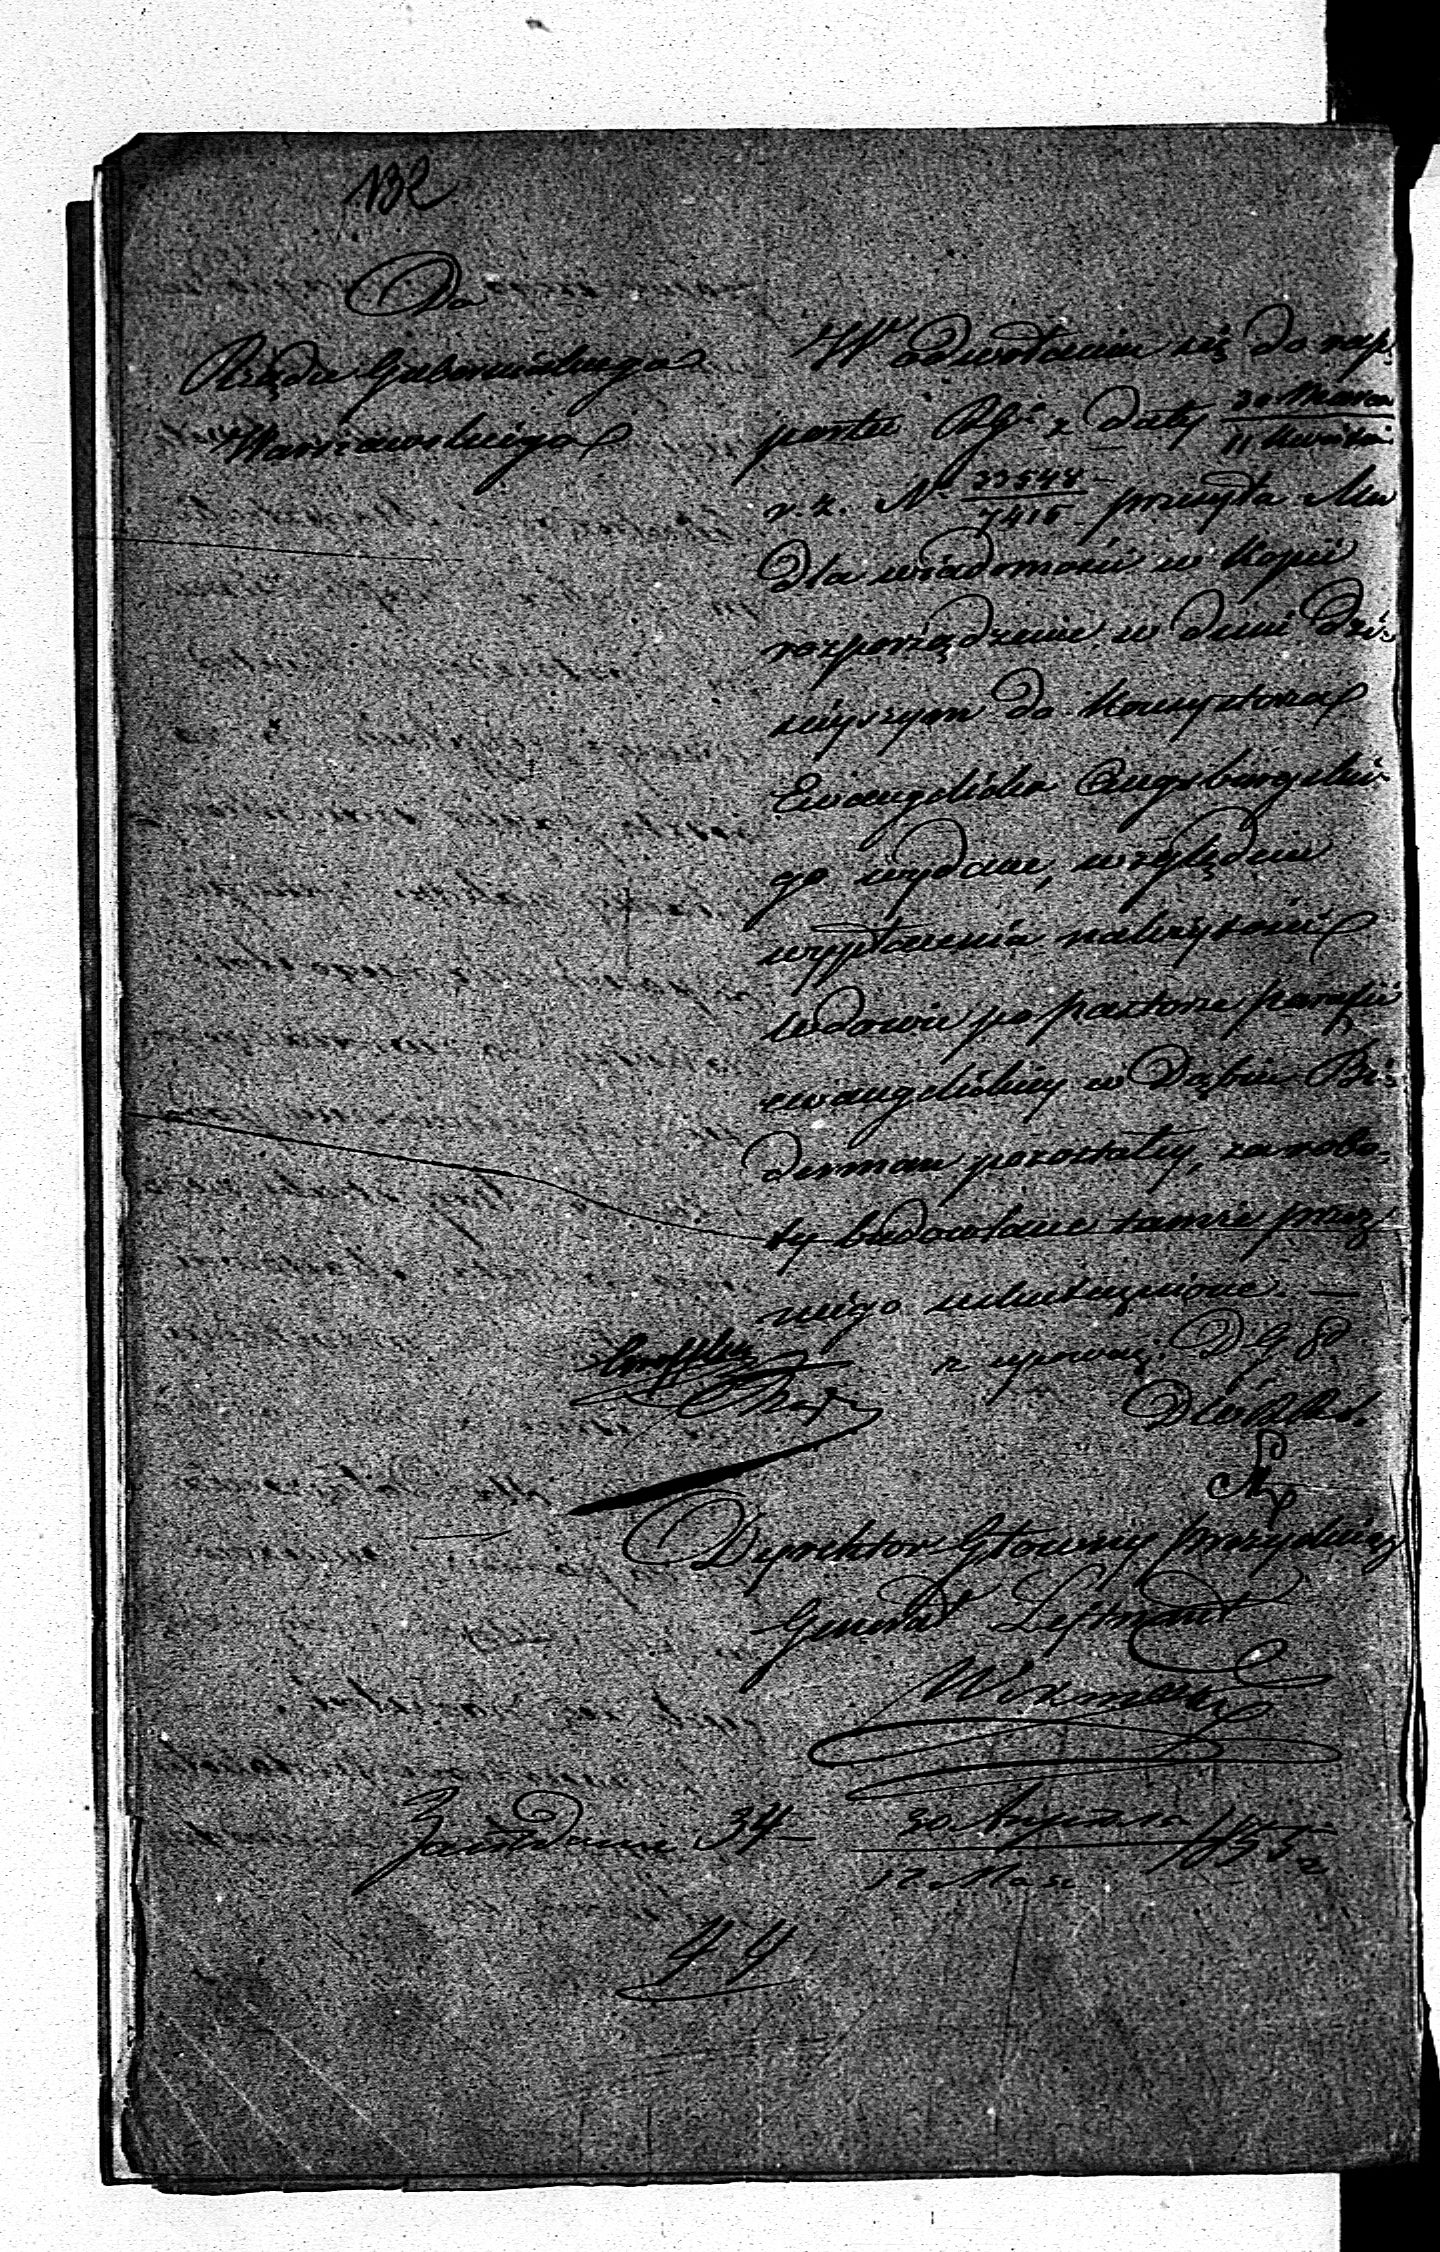 132
Do
Rządu Gubernialnego
Warszawskiego
W odwołaniu się do rap-
portu RGo z daty 30 Marca / 11 Kwietnia
r. z. No 33548 / 7415 przesyła Mu
dla wiadomości w kopii
rozporządzenie w dniu dzi-
siejszym do Konsystorza
Ewangelicko Augsburgskie-
go wydane, względem
wypłacenia należytości
wdowie po pastorze parafii
ewangelickiej w Dąbiu Bi-
derman pozostałej, za robo-
ty budowlane tamże przez
niego uskutecznione. —
z upoważ. D G P
Dyrektor Główny Prezydujący
Generał Lejtnant
30 Апреля / 12 Мая 1855 r
34
44